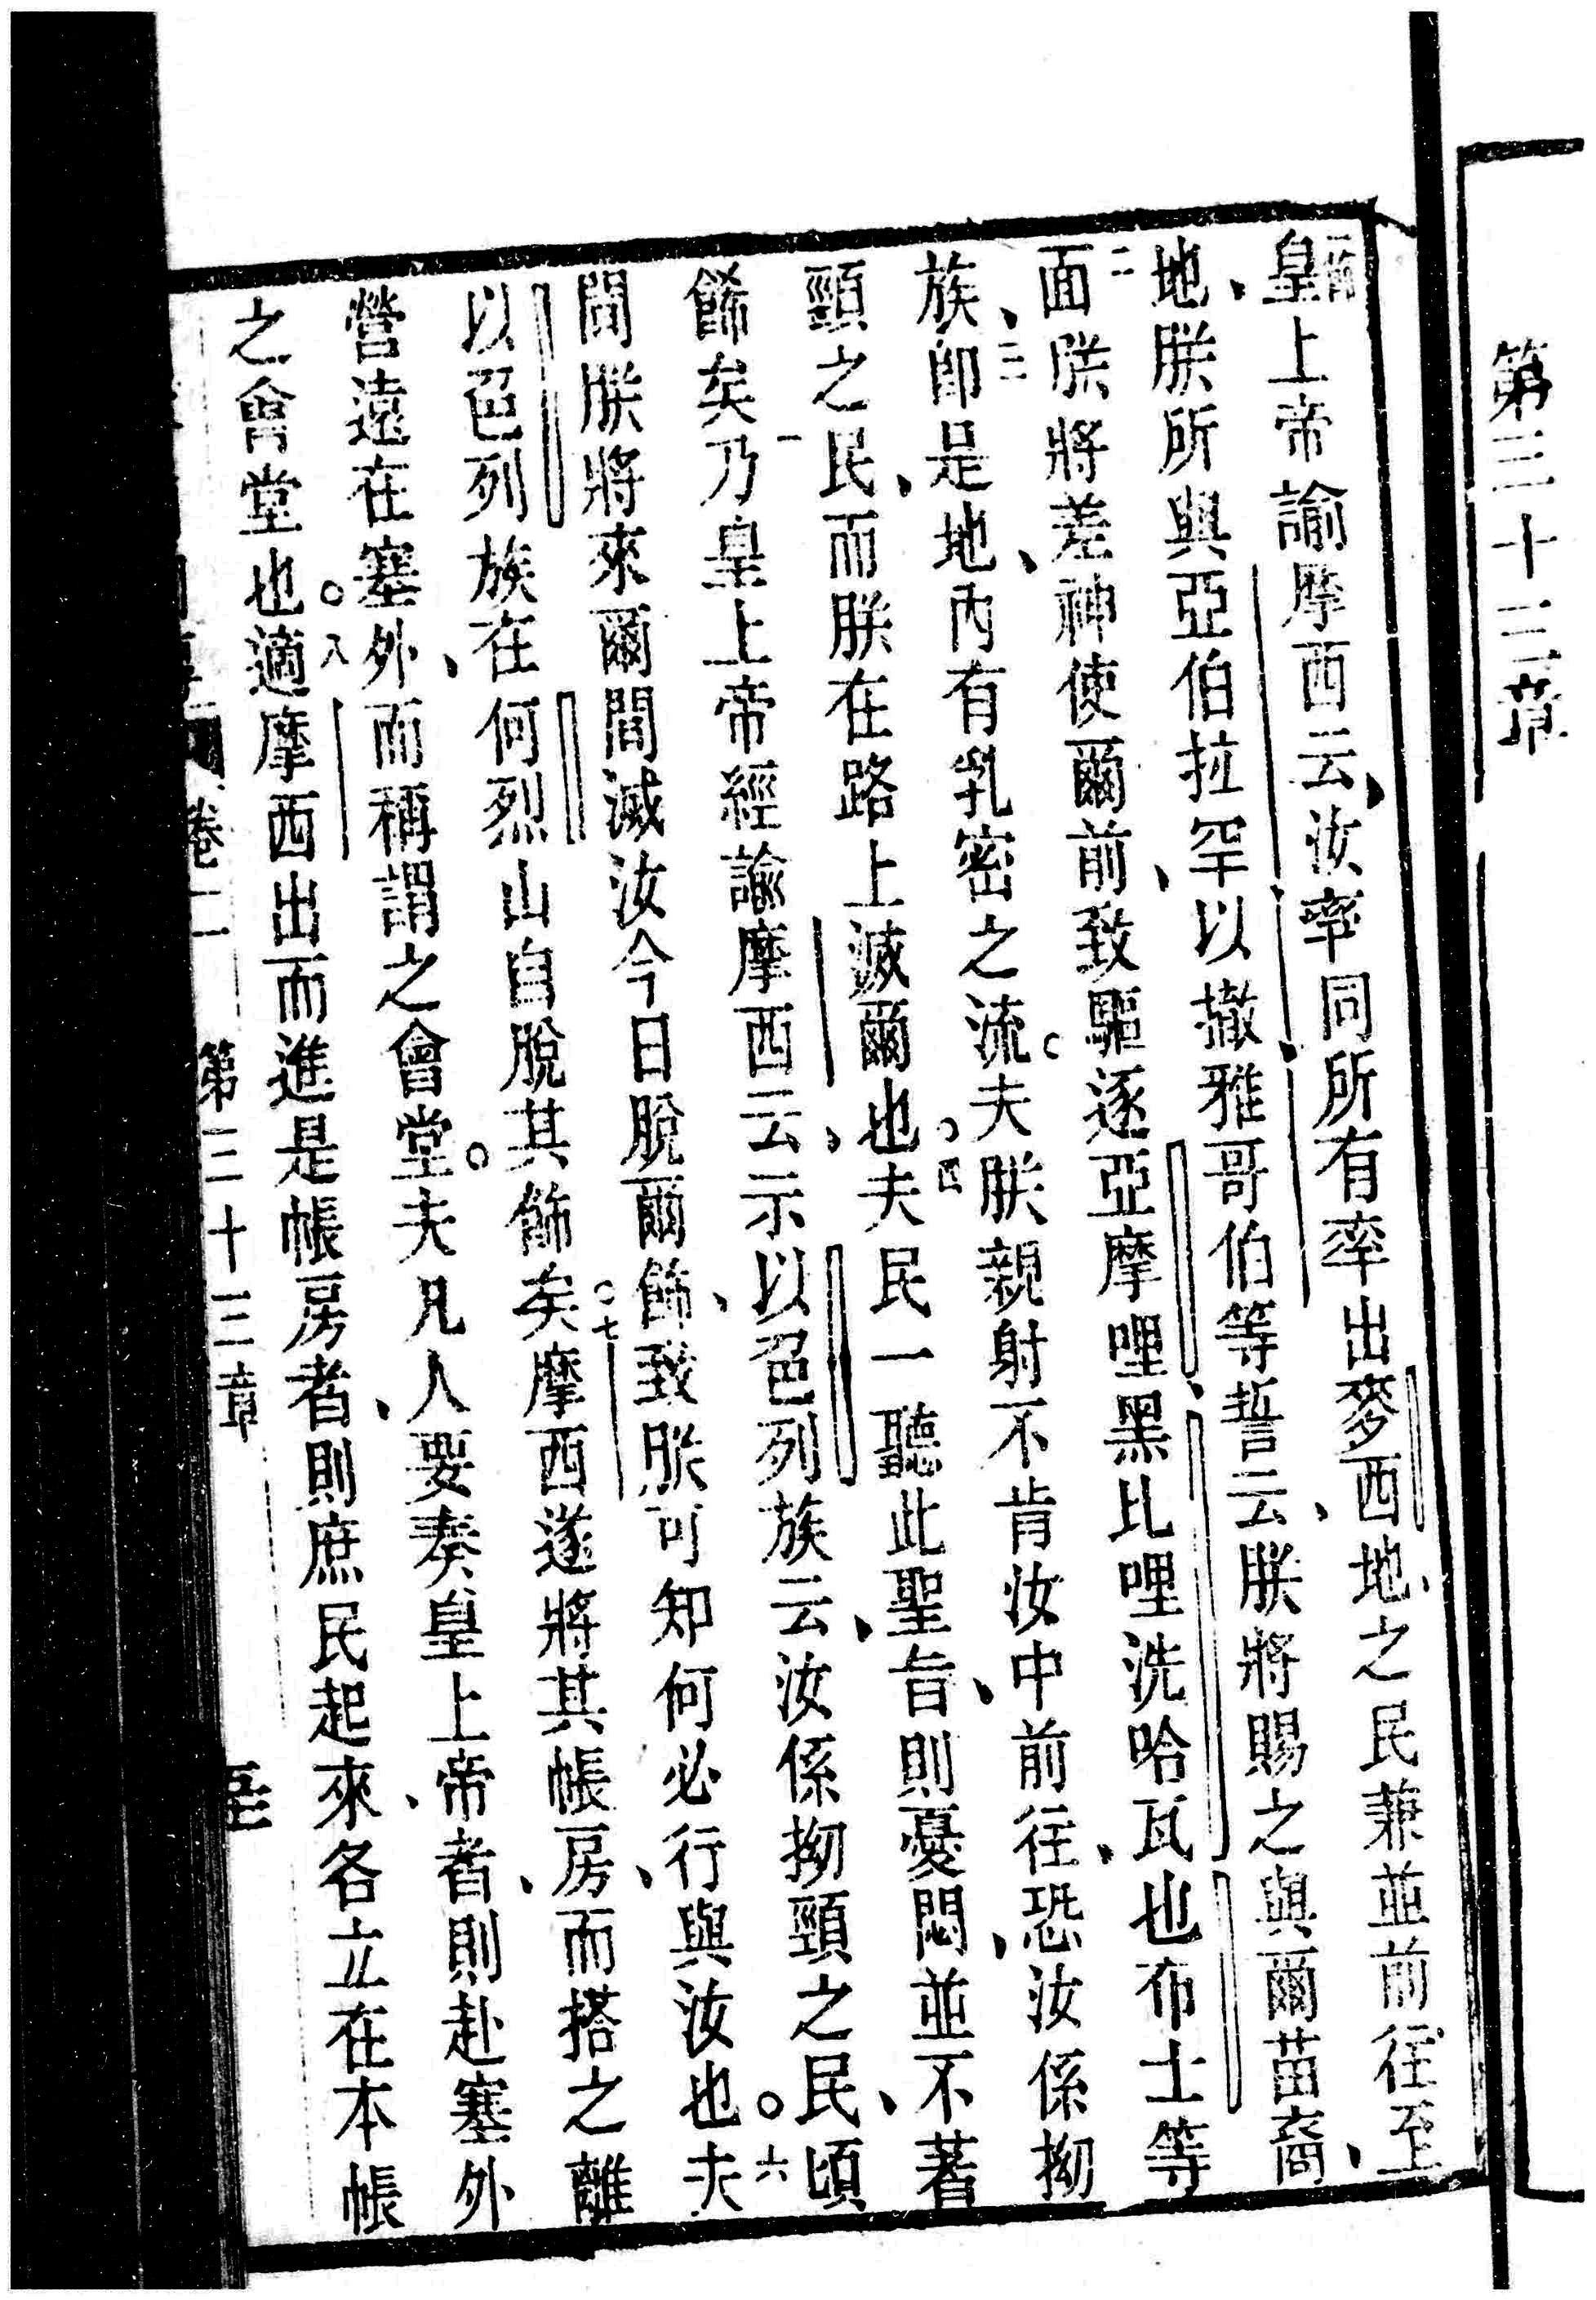 第三十三章
皇上帝諭摩西云、汝率同所有率出麥西地、之民兼並前往至
地、朕所與亞伯拉罕、以撒、雅哥伯等誓云、朕將賜之與爾苗裔、
二面朕將差神使爾前、致驅逐亞摩哩、黑比哩洗哈瓦也布士等
族、三卽是地、內有乳密之流。夫朕親射不肯汝中前往、恐汝係拗
頸之民、而朕在路上滅爾也。四夫民一聽此聖旨、則憂悶、並不著
飾矣一乃皇上帝經諭摩西云、示以色列族云、汝係拗頸之民、頃
間朕將來爾間滅汝今日脫爾飾、致朕可知何必行與汝也。六夫
以色列族在何烈山自脫其飾矣。七摩西遂將其帳房、而搭之離
營遠在塞外、而稱謂之會堂。夫凡人要奏皇上帝者、則赴塞外
之會堂也。八適摩西出而進是帳房者、則庶民起來、各立在本帳
卷二 第三十三章